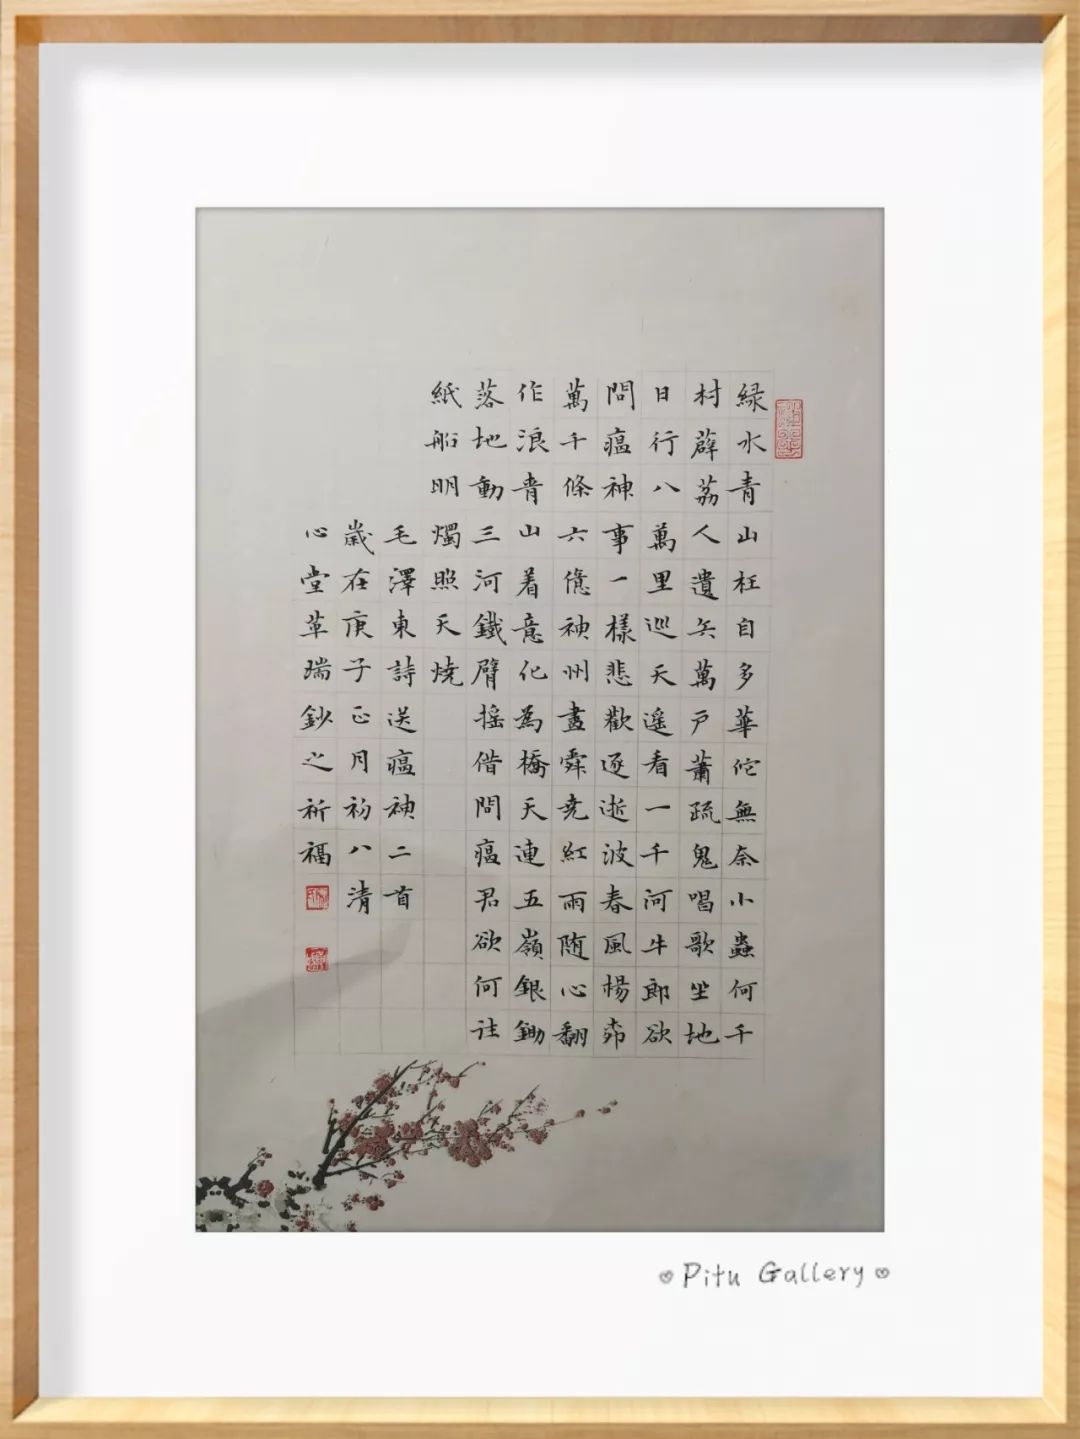 緑水青山枉自多華佗無奈小蟲何千
村薜荔人遺矢萬戸蕭疏鬼唱歌坐地
日行八萬里巡天遥看一千河牛郎欲
問瘟神事一樣悲歡逐逝波春風楊柳
萬千條六億神州盡舜尭紅雨随心翻
作浪青山着意化為橋天連五嶺銀鋤
落地動三河鐵臂揺借問瘟君欲何往
紙船明燭照天燒
毛澤東詩送瘟神二首
歲在庚子正月初八清
心堂革瑞鈔之祈福
Pitu Gallery